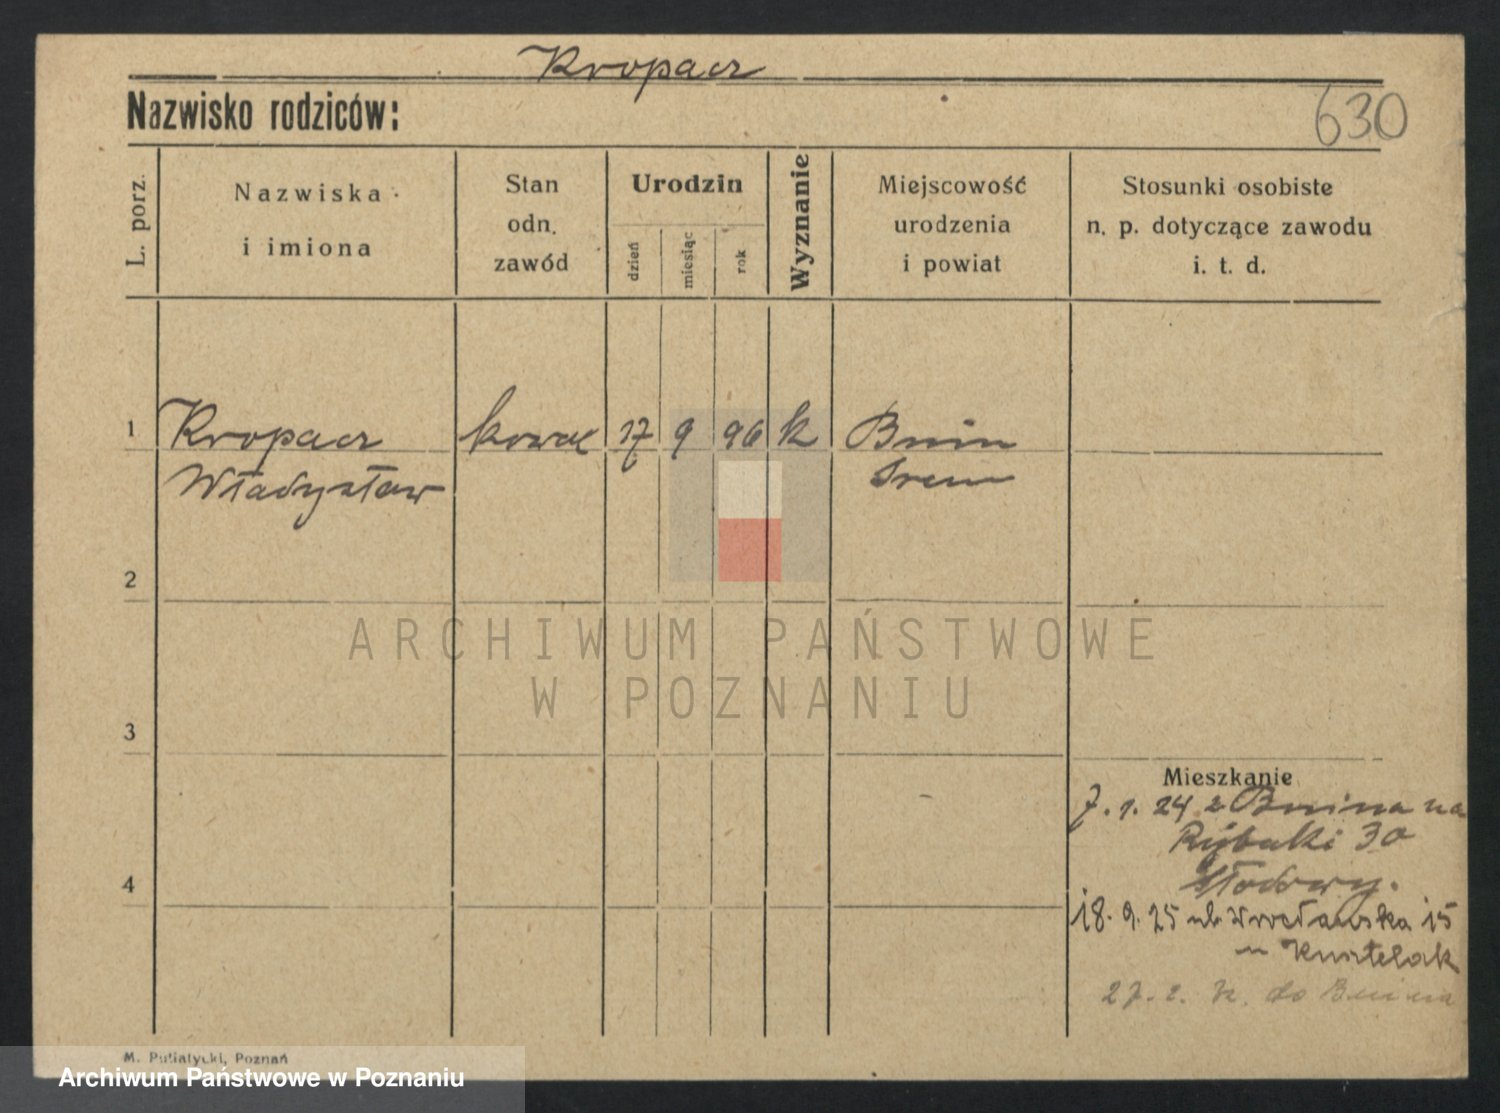 Kropacz
Nazwisko rodziców:
630
L. porz.
Nazwiska
i imiona
Stan
odn.
zawód
Urodzin
dzień
miesiąc
rok
Wyznanie
Miejscowość
urodzenia
i powiat
Stosunki osobiste
n. p. dotyczące zawodu
i. t. d.
1
Kropacz
Władysław
kowal
17
9
96
k
Bnin
Śrem
2
3
4
ARCHIWUM PAŃSTWOWE
W POZNANIU
Mieszkanie
7. 1. 24 z Bnina na
Rybaki 30
18. 9. 25 ul. Wrocławska 15
do Bnina
M. Putiatycki, Poznań
Archiwum Państwowe w Poznaniu